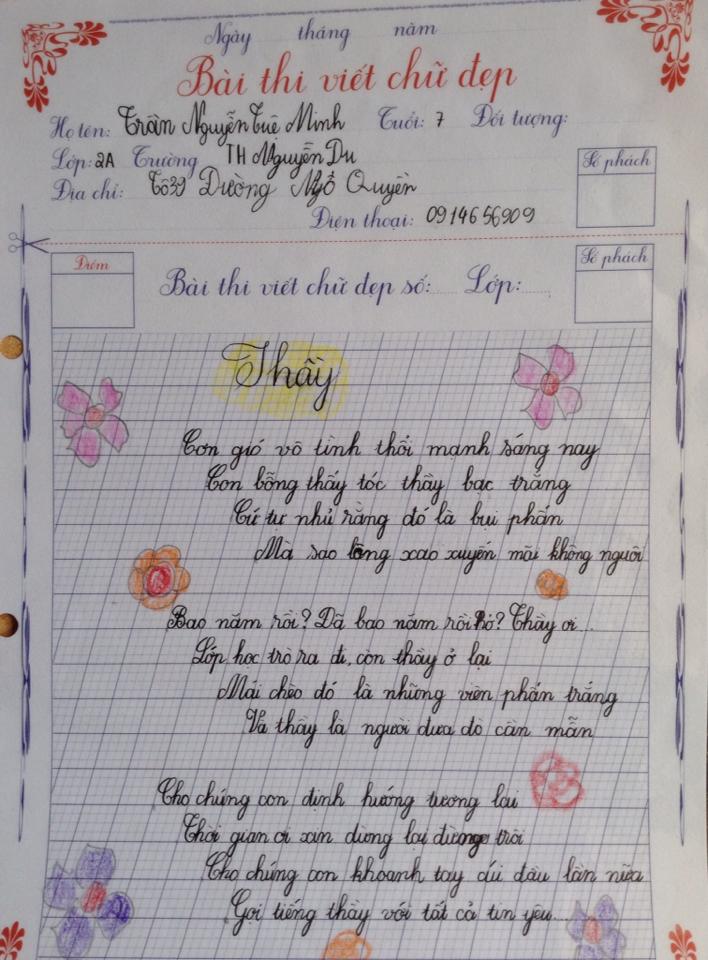 Ngày tháng năm
Bài thi viết chữ đẹp
Họ tên: Trần Nguyễn Tuệ Minh Tuổi: 7 Đối tượng:
Lớp: 2A Trường TH Nguyễn Du
Địa chỉ: Tổ 39 Đường Ngô Quyền
Điện thoại: 0914656909
Số phách
Điểm
Bài thi viết chữ đẹp số: Lớp:
Số phách
Thầy
Cơn gió vô tình thổi mạnh sáng nay
Con bỗng thấy tóc thầy bạc trắng
Cứ tự nhủ rằng đó là bụi phấn
Mà sao lòng xao xuyến mãi không nguôi
Bao năm rồi? Đã bao năm rồi hở? Thầy ơi...
Lớp học trò ra đi, còn thầy ở lại
Mái chèo đó là những viên phấn trắng
Và thầy là người đưa đò cần mẫn
Cho chúng con định hướng tương lai
Thời gian ơi xin dừng lại đừng trôi
Cho chúng con khoanh tay cúi đầu lần nữa
Gọi tiếng thầy với tất cả tin yêu....